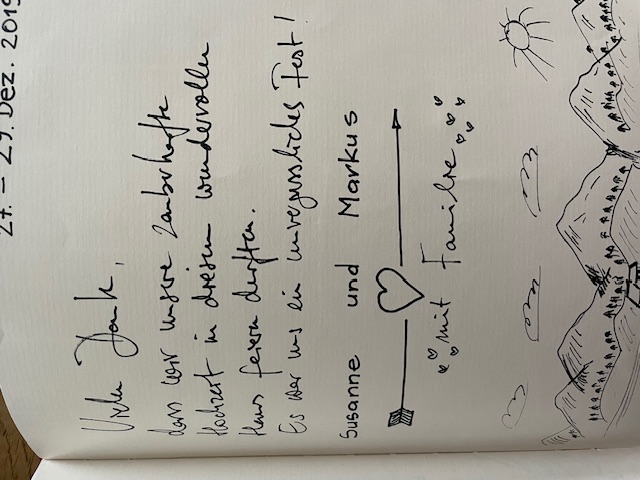 27. – 29. Dez. 2019
Vielen Dank,
dass wir unsere zauberhafte
Hochzeit in diesem wundervollen
Haus feiern durften.
Es war uns ein unvergessliches Fest!
Susanne und Markus
mit Familie